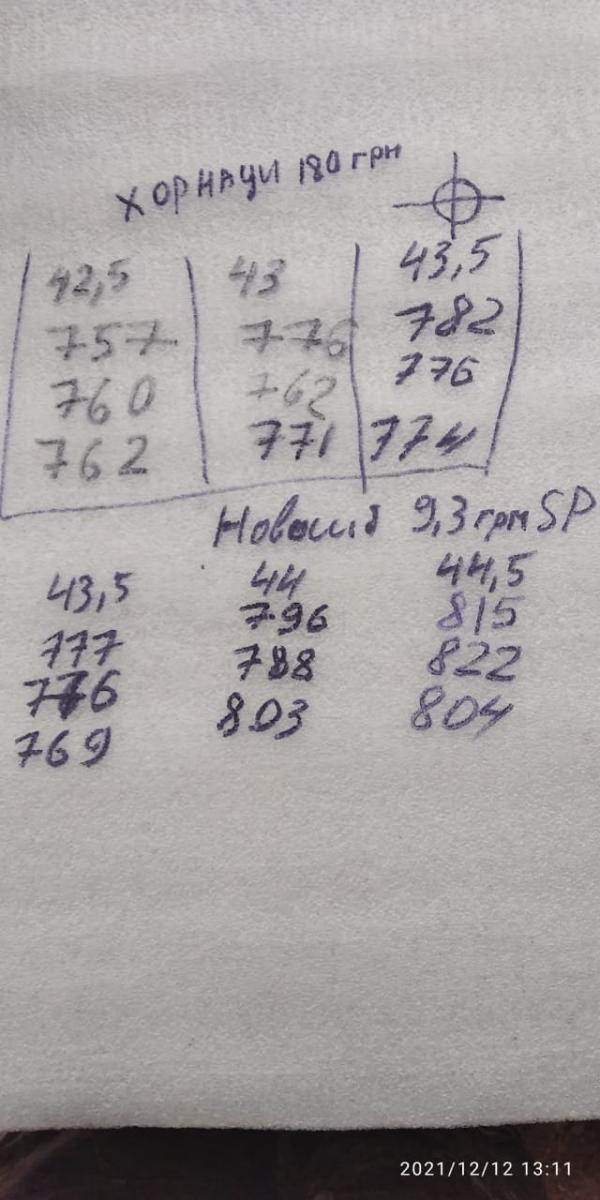 ХОРНАДИ 180 грн
42,5 43 43,5
757 776 782
760 762 776
762 771 774
9,3 грм SP
43,5 44 44,5
777 796 815
776 788 822
769 803 804
2021/12/12 13:11